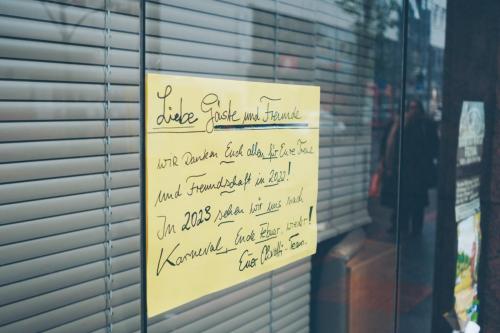 Liebe Gäste und Freunde
wir Danken Euch allen für Eure Treue
und Freundschaft in 2022!
In 2023 sehen wir uns nach
Karneval, Ende Februar, wieder!
Euer Team.